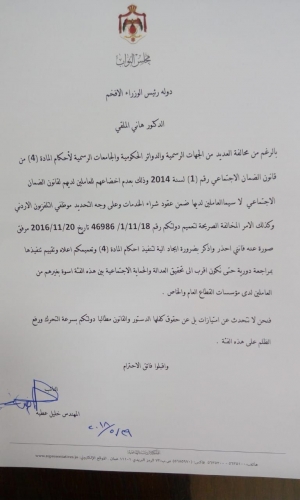 مجلس النواب
دولة رئيس الوزراء الافخم
الدكتور هاني الملقي
بالرغم من مخالفة العديد من الجهات الرسمية والدوائر الحكومية والجامعات الرسمية لأحكام المادة (4) من
قانون الضمان الاجتماعي رقم (1) لسنة 2014 وذلك بعدم اخضاعهم للعاملين لديهم لقانون الضمان
الاجتماعي لا سيما للعاملين لديها ضمن عقود شراء الخدمات وعلى وجه التحديد موظفي التلفزيون الاردني
وكذلك الامر المخالفة الصريحة لتعميم دولتكم رقم 46986 /1/11/18 تاريخ 2016/11/20 مرفق
صورة عنه فانني احذر واذكر بضرورة ايجاد الية لتنفيذ احكام المادة (4) وتعميمكم اعلاه وتقييم تنفيذها
بمراجعة دورية حتى نكون اقرب الى تحقيق العدالة والحماية الاجتماعية بين هذه الفئة اسوة بغيرهم من
العاملين لدى مؤسسات القطاع العام والخاص .
فنحن لا نتحدث عن امتيازات بل عن حقوق كفلها الدستور والقانون مطالبا دولتكم بسرعة التحرك ورفع
الظلم على هذه الفئة .
واقبلوا فائق الاحترام
النائب
المهندس خليل عطية